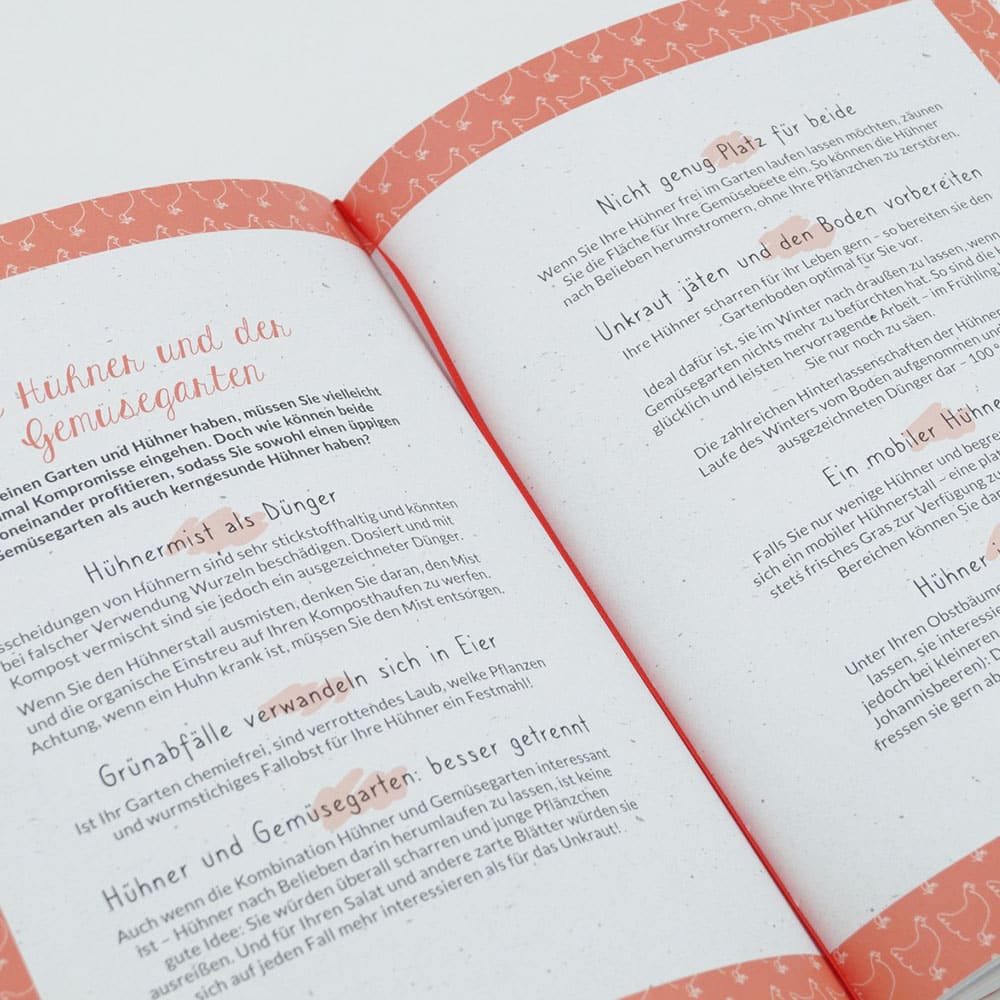 Hühner und der
Gemüsegarten
einen Garten und Hühner haben, müssen Sie vielleicht
mal Kompromisse eingehen. Doch wie können beide
oneinander profitieren, sodass Sie sowohl einen üppigen
Gemüsegarten als auch kerngesunde Hühner haben?
Hühnermist als Dünger
sscheidungen von Hühnern sind sehr stickstoffhaltig und könnten
bei falscher Verwendung Wurzeln beschädigen. Dosiert und mit
Kompost vermischt sind sie jedoch ein ausgezeichneter Dünger.
Wenn Sie den Hühnerstall ausmisten, denken Sie daran, den Mist
und die organische Einstreu auf Ihren Komposthaufen zu werfen.
Achtung, wenn ein Huhn krank ist, müssen Sie den Mist entsorgen.
Grünabfälle verwandeln sich in Eier
Ist Ihr Garten chemiefrei, sind verrottendes Laub, welke Pflanzen
und wurmstichiges Fallobst für Ihre Hühner ein Festmahl!
Hühner und Gemüsegarten: besser getrennt
Auch wenn die Kombination Hühner und Gemüsegarten interessant
ist – Hühner nach Belieben darin herumlaufen zu lassen, ist keine
gute Idee: Sie würden überall scharren und junge Pflänzchen
ausreißen. Und für Ihren Salat und andere zarte Blätter würden sie
sich auf jeden Fall mehr interessieren als für das Unkraut!
Nicht genug Platz für beide
Wenn Sie Ihre Hühner frei im Garten laufen lassen möchten, zäunen
Sie die Fläche für Ihre Gemüsebeete ein. So können die Hühner
nach Belieben herumstromern, ohne Ihre Pflänzchen zu zerstören.
Unkraut jäten und den Boden vorbereiten
Ihre Hühner scharren für ihr Leben gern – so bereiten sie den
Gartenboden optimal für Sie vor.
Ideal dafür ist, sie im Winter nach draußen zu lassen, wenn
Gemüsegarten nichts mehr zu befürchten hat. So sind die H
glücklich und leisten hervorragende Arbeit – im Frühling
Sie nur noch zu säen.
Die zahlreichen Hinterlassenschaften der Hühner
Laufe des Winters vom Boden aufgenommen un
ausgezeichneten Dünger dar – 100 %
Ein mobiler Hühne
Falls Sie nur wenige Hühner und begre
sich ein mobiler Hühnerstall – eine plat
stets frisches Gras zur Verfügung zu
Bereichen können Sie da
Hühner
Unter Ihren Obstbäum
lassen, sie interessie
jedoch bei kleineren
Johannisbeeren): D
fressen sie gern ab